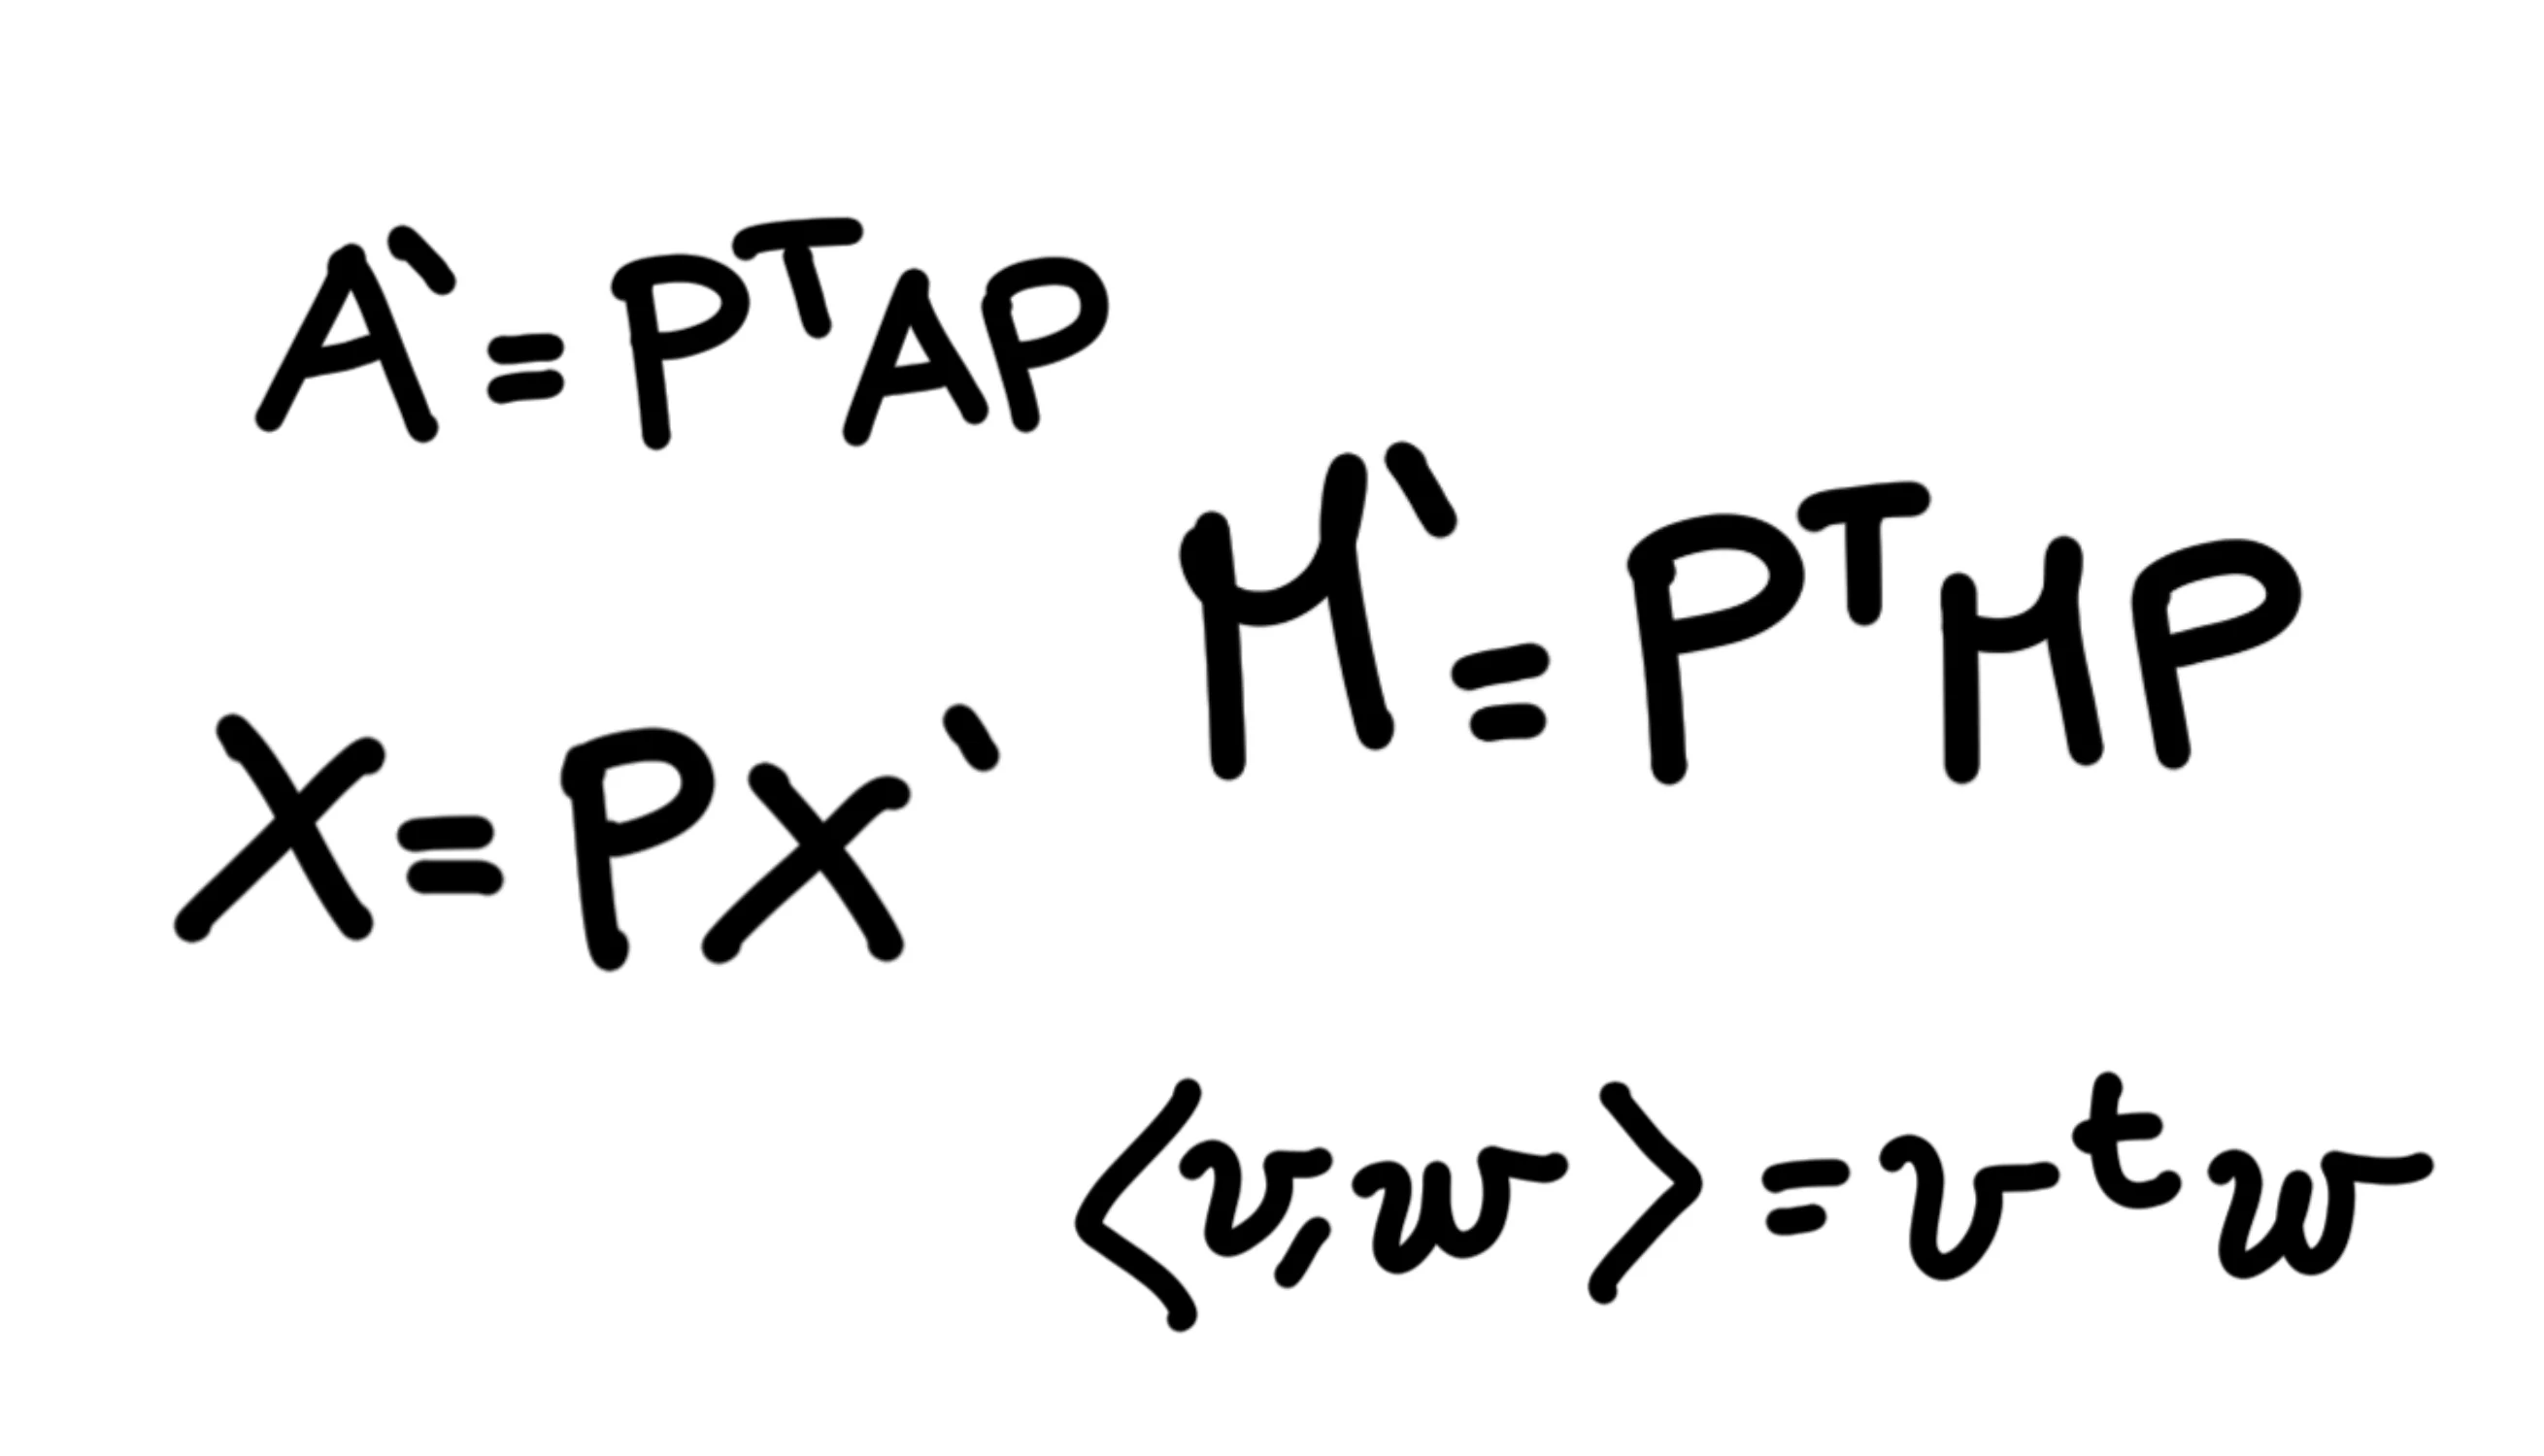 A` = PᵀAP
M` = PᵀMP
X = PX`
⟨v, w⟩ = vᵗw